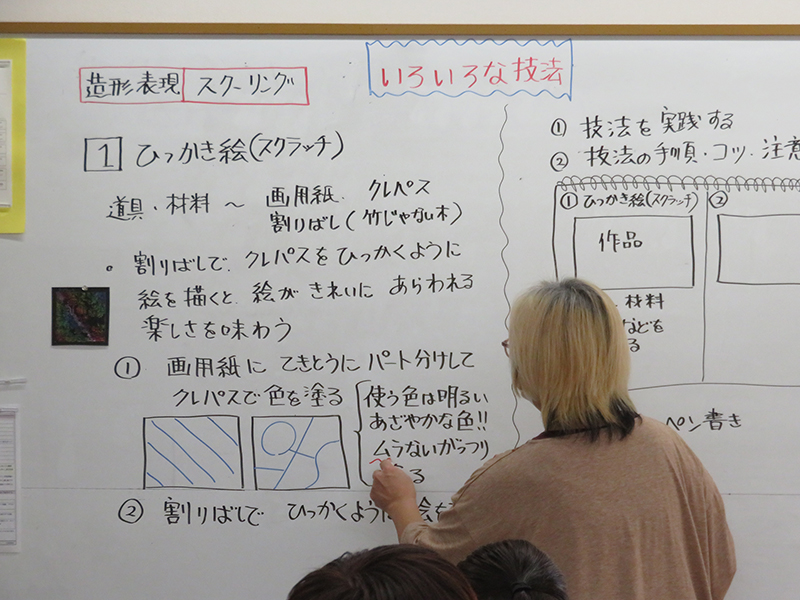 いろいろな技法
造形表現 スクーリング
1 ひっかき絵(スクラッチ)
道具・材料 〜 画用紙. クレパス
割りばし(竹じゃない木)
。割りばしで、クレパスをひっかくように
絵を描くと、絵がきれいに あらわれる
楽しさを味わう
① 画用紙に てきとうに パート分けして
クレパスで色を塗る
使う色は明るい
あざやかな色!!
ムラないがっつり
る
② 割りばしで ひっかくように絵を
① 技法を実践する
② 技法の手順・コツ・注意
① ひっかき絵(スクラッチ)
作品
材料
などを
る
②
ペン書き